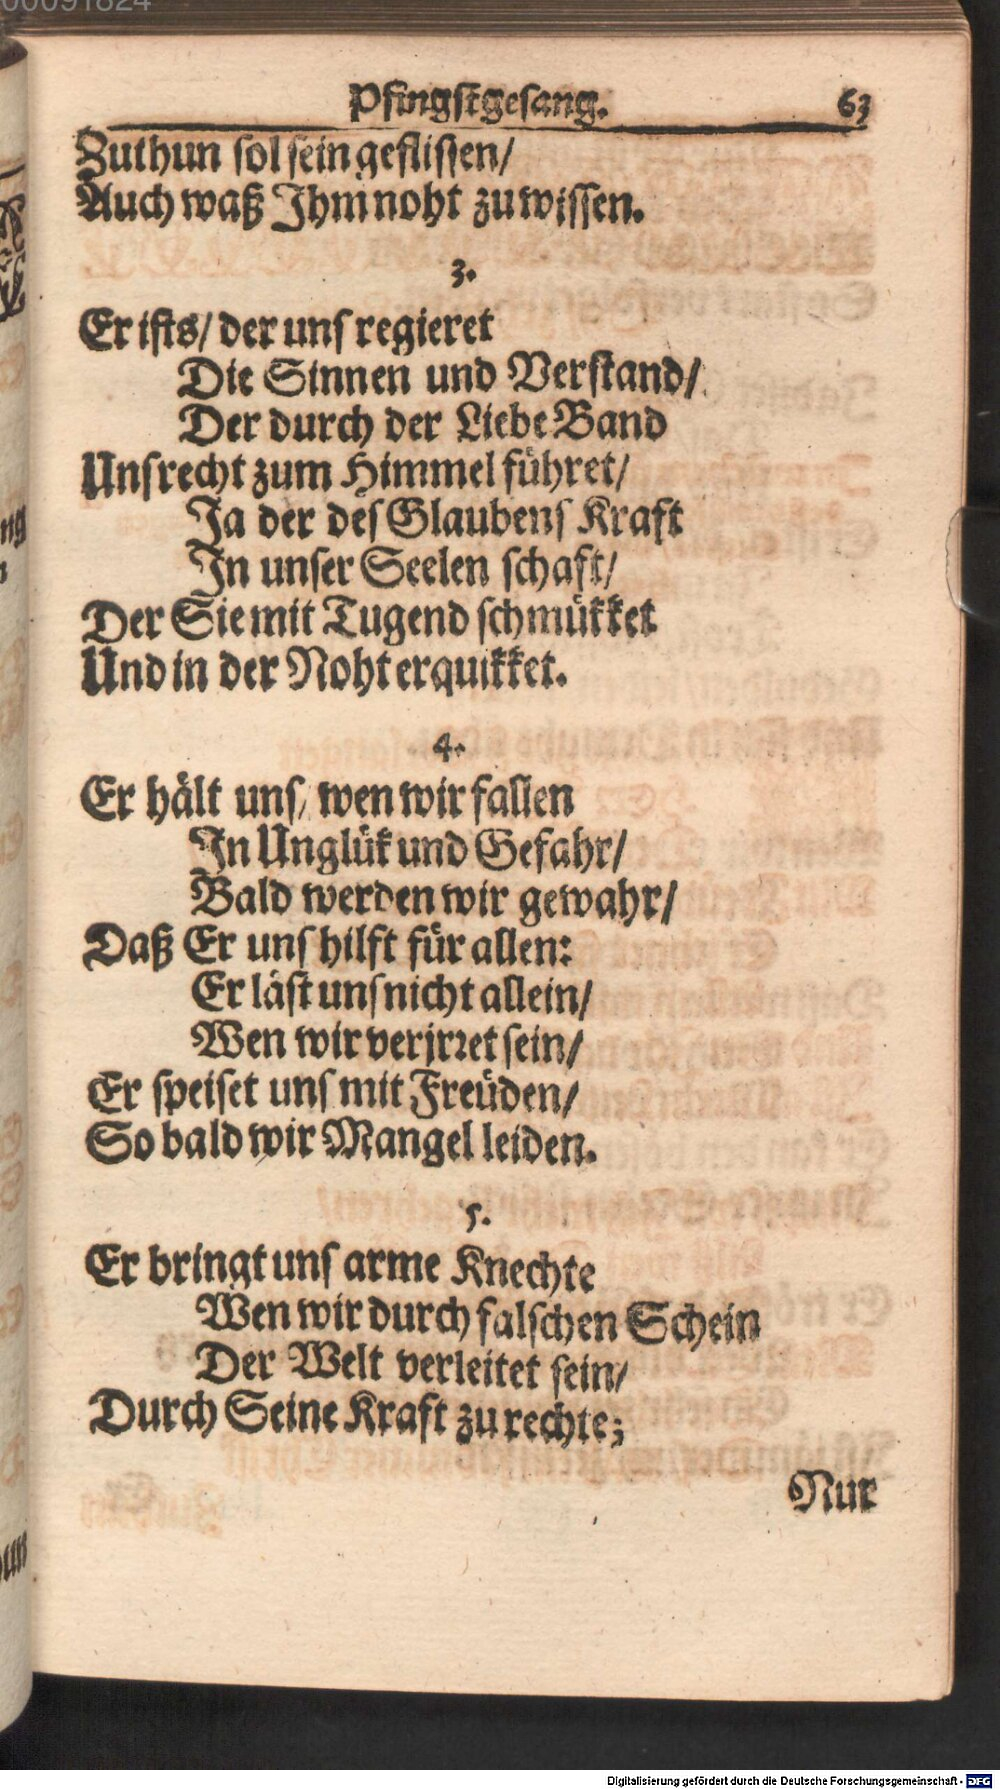 00091824
Pfingstgesang. 63
Zuthun sol sein geflissen/
Auch waß Ihm noht zu wissen.
3.
Er ists/ der uns regieret
Die Sinnen und Verstand/
Der durch der Liebe Band
Uns recht zum Himmel führet/
Ja der des Glaubens Kraft
In unser Seelen schaft/
Der Sie mit Tugend schmükket
Und in der Noht erquikket.
4.
Er hält uns/ wen wir fallen
In Unglük und Gefahr/
Bald werden wir gewahr/
Daß Er uns hilft für allen:
Er läst uns nicht allein/
Wen wir verjrret sein/
Er speiset uns mit Freüden/
So bald wir Mangel leiden.
5.
Er bringt uns arme Knechte
Wen wir durch falschen Schein
Der Welt verleitet sein/
Durch Seine Kraft zu rechte;
Nur
Digitalisierung gefördert durch die Deutsche Forschungsgemeinschaft - DFG